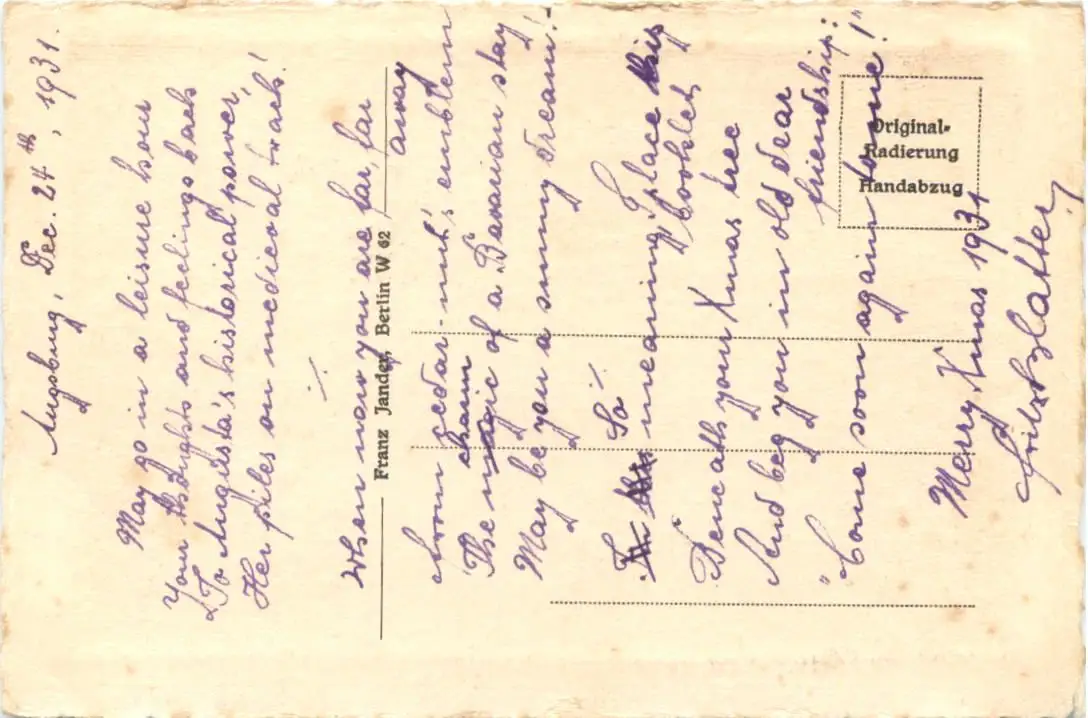 Augsburg, Dec. 24th, 1931.
May go in a leisure hour
Your thoughts and feelings back
To Augusta's historical power,
Her piles on medieval track!
When now you are far, far
away
From zedar-nut's emblem
The charm of a Bavarian stay
May be you a sunny dream!-
So meaning I place this
booklet
Beneath your Xmas tree
And beg you in old dear
friendship:
"Come soon again to me!"
Merry Xmas 1931
Fritz
Franz Jander, Berlin W 62
Original-
Radierung
Handabzug